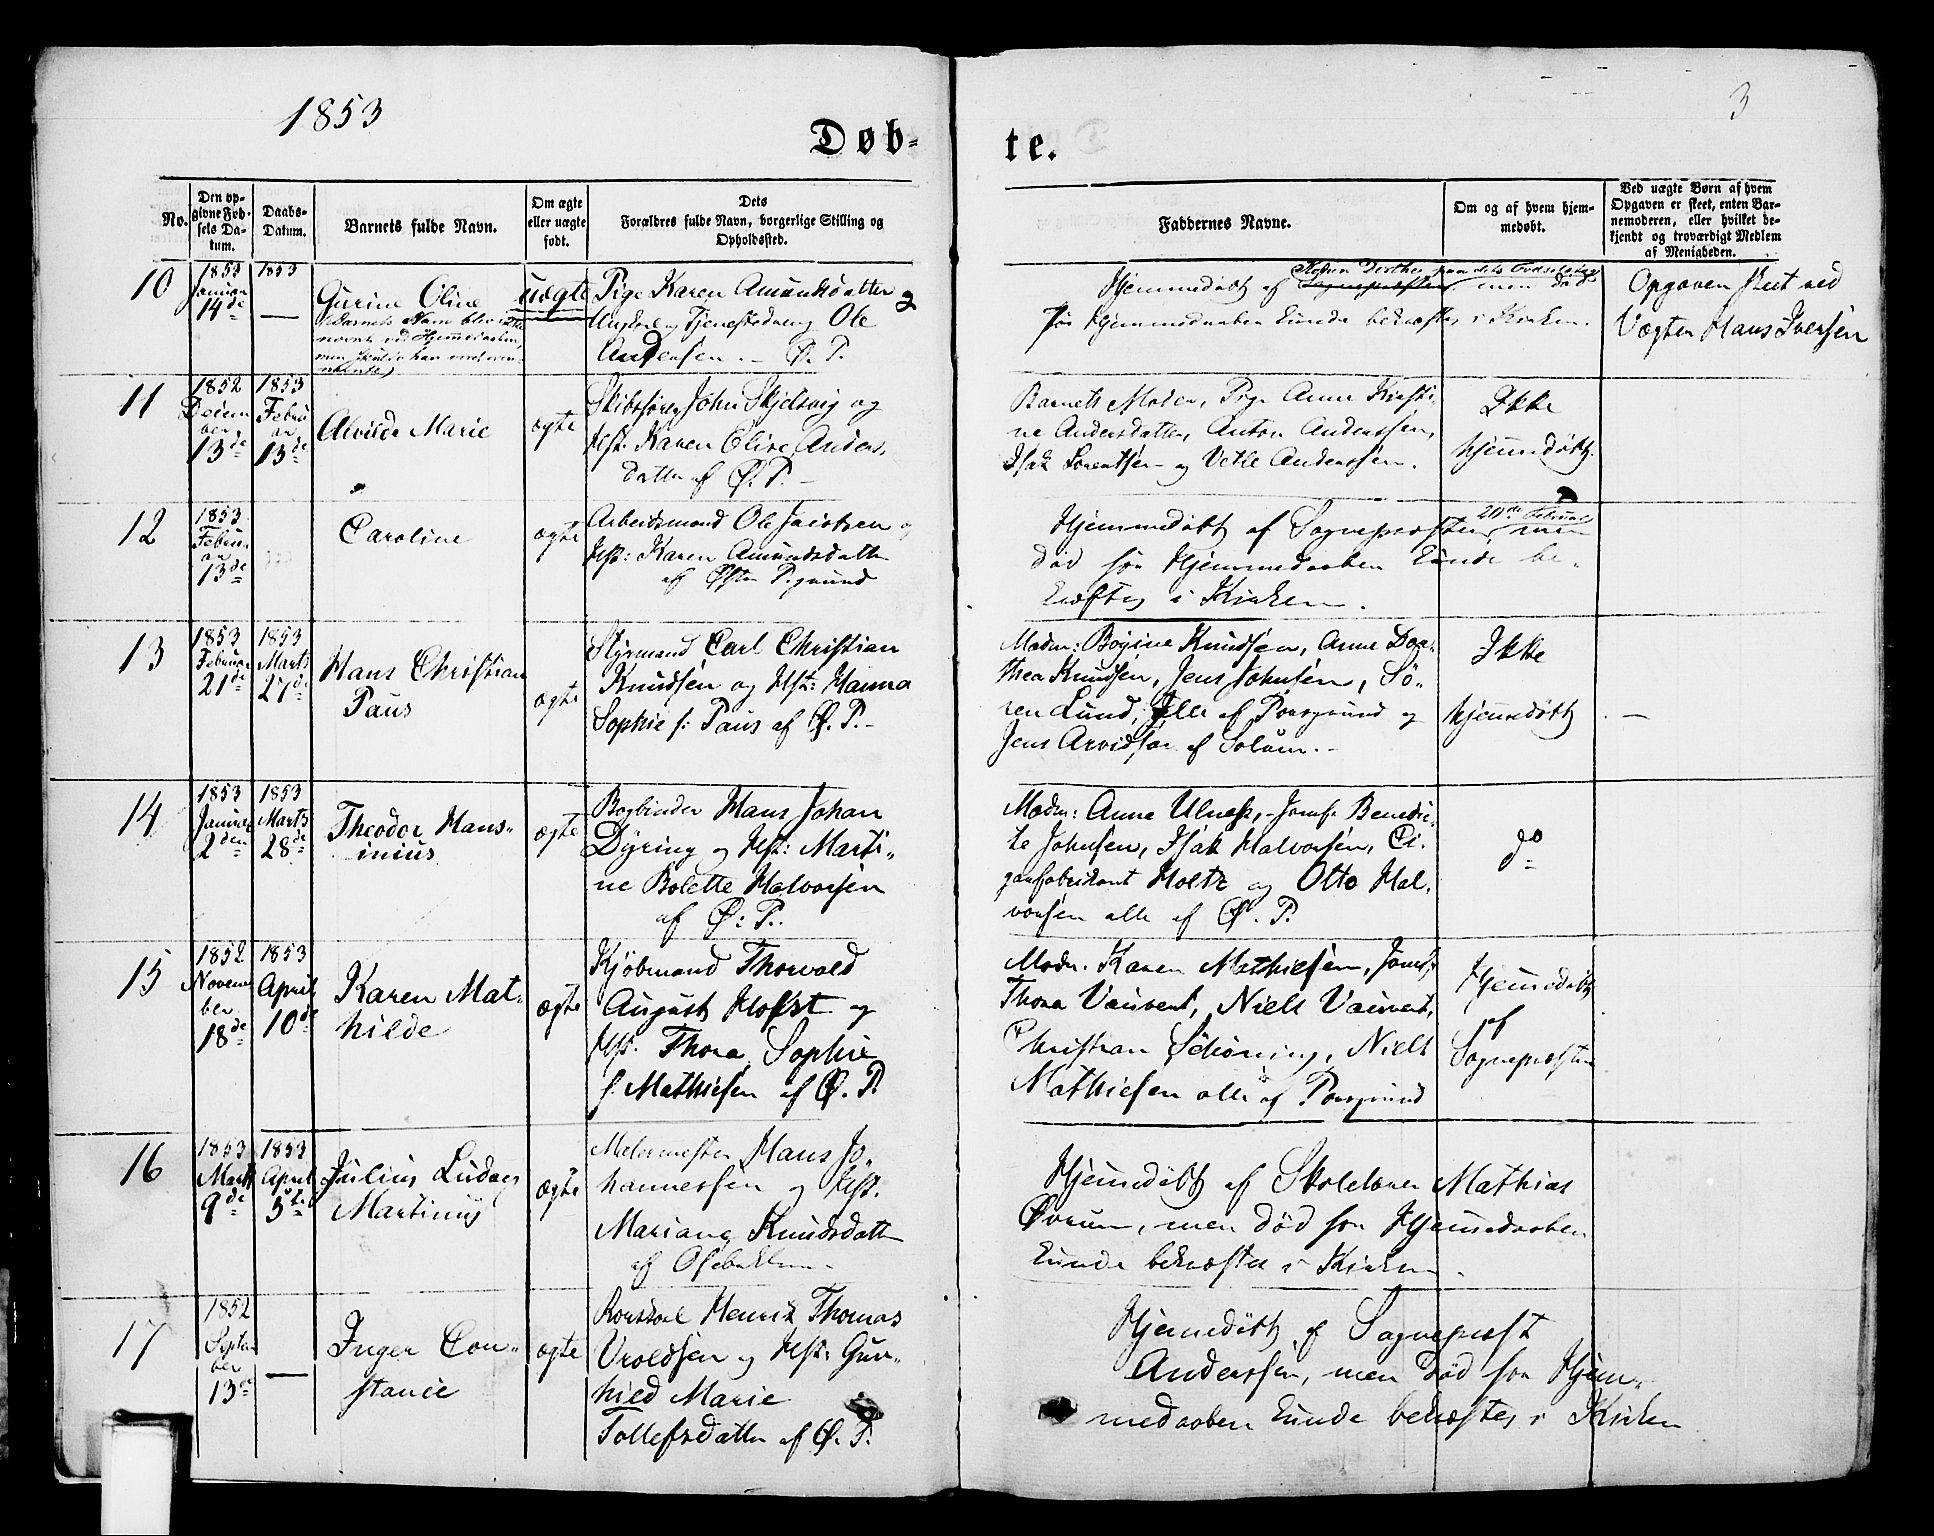 1853
3
Døb-
te.
No.
Den op-
givne Fød-
sels Da-
tum.
Daabs-
Datum.
Barnets fulde Navn.
Om ægte
eller uægte
født.
Dets
Forældres fulde Navn, borgerlige Stilling og
Opholdssted.
Faddernes Navne.
Om og af hvem hjem-
medøbt.
Ved uægte Børn af hvem
Opgaven er skeet, enten Bar-
nemoderen, eller hvilket be-
kjendt og troværdigt Medlem
af Menigheden.
10
1853
Januar
14de
1853
—
Gurine Oline
Barnets Navn blev
ved Hjemmedaaben,
men skulde han
uægte
Pige Karen Amundsdatter
Ungkarl og Tjenestedreng Ole
Andersen. – Ø. P.
2
Hjemmedøbt af Sognepræsten, men død
før Hjemmedaaben kunde bekræftes i Kirken.
Opgaven skeet ved
Vægter Hans Iversen
11
1852
Decem
ber
13de
1853
Febru
ar
13de
Alvilde Marie
ægte
Skibsfører John Skjelsvig og
Hst. Karen Oline Anders,
datter af Ø. P. –
Barnets Moder, Pige Anne Kirsti-
ne Andersdatter, Anton Anderssen,
Isak Lorentsen og Vetle Anderssen.
Ikke
hjemmedøbt.
12
1853
Febru-
ar
13de
Caroline
ægte
Arbeidsmand Ole Jacobsen og
Hst: Karen Amundsdatter
af Øster P.grund
Hjemmedøbt af Sognepræsten, men
død før Hjemmedaaben kunde be-
kræftes i Kirken.
13
1853
Februar
21de
1853
Marts
27de
Hans Christian
Paus
ægte
Styrmand Carl Christian
Knudsen og Hst: Hanna
Sophie f: Paus af Ø. P. –
Madm: Bogine Knudsen, Anne Dor-
thea Knudsen, Jens Johnsen, Sø-
ren Lund, Alle af Porsgrund og
Jens Arvidson af Solum. –
Ikke
hjemmedøbt
—
14
1853
Januar
2den
1853
Marts
28de
Theodor Hans-
inius
ægte
Bogbinder Hans Johan
Dyring og Hst: Marti-
ne Bolette Halvorsen
af Ø: P.
Madm: Anne Ulness, Jomf. Benedic-
te Johnsen, Isak Halvorsen, Ci-
garfabrikant Holtz og Otto Hal-
vorsen alle af Ø. P.
do
15
1852
Novem
ber
18de
1853
April
10de
Karen Mat-
hilde
ægte
Kjøbmand Thorvald
August Hofst og
Hst. Thora Sophie
f. Mathiesen af Ø. P.
Madm. Karen Mathiesen, Jomf:
Thora Vauvert, Niels Vauvert,
Christian Schöning, Niels
Mathiesen alle af Porsgrund
Hjemmedøbt
af
Sognepræsten
16
1853
Marts
9de
1853
April
5te
Julius Ludvig
Martinius
ægte
Malermester Hans Jo-
hannessen og Hst.
Mariane Knudsdatter
af Osebakken –
Hjemmedøbt af Skolelærer Mathias
Øvrum, men død før Hjemmedaaben
kunde bekræftes i Kirken.
17
1852
Septem
ber
13de
—
Inger Con-
stance
ægte
Konstabel Henrik Thomas
Vroldsen og Hst: Gun-
hild Marie
Tollefsdatter af Ø. P.
Hjemmedøbt af Sognepræst
Anderssen, men død før Hjem-
medaaben kunde bekræftes i Kirken